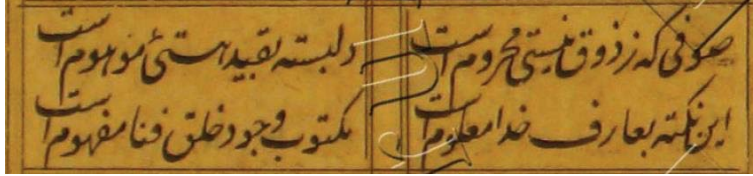 صوفی که ز ذوق نیستی محروم است
دلبسته بقید هستئ موهوم است
این نکته بعارف خدا معلوم است
مکتوب وجود خلق فنا مفهوم است